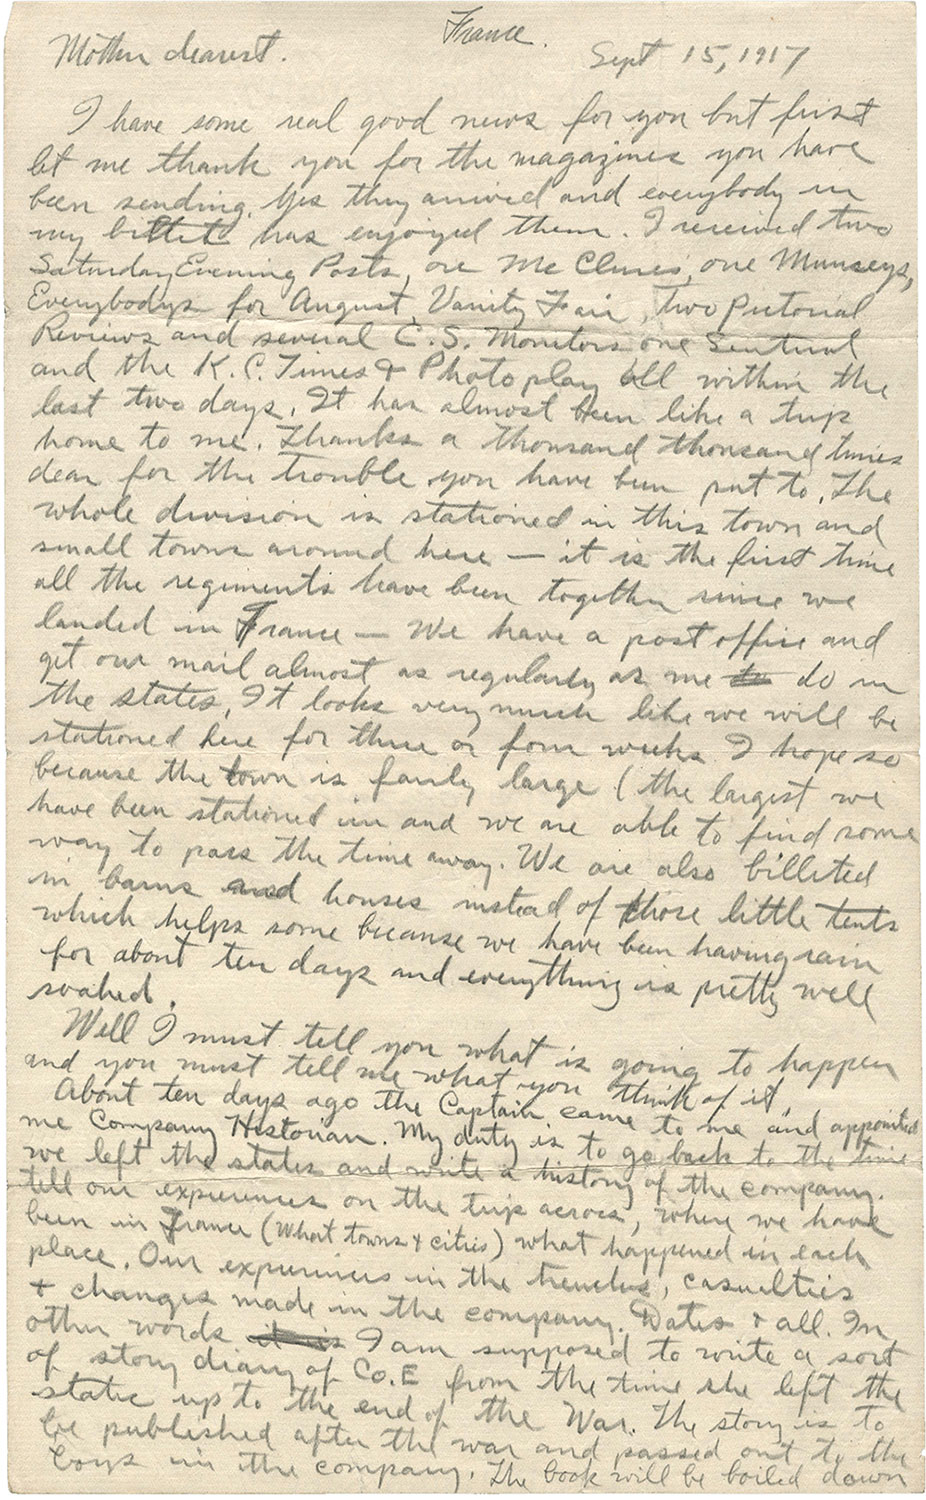 France.
Mother dearest. Sept 15, 1917
I have some real good news for you but first
let me thank you for the magazines you have
been sending. Yes they arrived and everybody in
my billet has enjoyed them. I received two
Saturday Evening Posts, one Mc Clures, one Munseys,
Everybodys for August, Vanity Fair, Two Pictorial
Reviews and several C.S. Monitors one Sentinal
and the K.C. Times & Photoplay all within the
last two days. It has almost been like a trip
home to me. Thanks a thousand thousand times
dear for the trouble you have been put to. The
whole division is stationed in this town and
small towns around here — it is the first time
all the regiments have been together since we
landed in France — We have a post office and
get our mail almost as regularly as me do in
the states. It looks very much like we will be
stationed here for three or four weeks. I hope so
because the town is fairly large (the largest we
have been stationed in and we are able to find some
way to pass the time away. We are also billeted
in barns and houses instead of those little tents
which helps some because we have been having rain
for about ten days and everything is pretty well
soaked.
Well I must tell you what is going to happen
and you must tell me what you think of it.
About ten days ago the Captain came to me and appointed
me Company Historian. My duty is to go back to the time
we left the states and write a history of the company.
tell our experiences on the trip across, where we have
been in France (What towns & cities) what happened in each
place. Our experiences in the trenches, casualties
& changes made in the company. Dates & all. In
other words it is I am supposed to write a sort
of story diary of Co. E from the time she left the
states up to the end of the War. The story is to
be published after the war and passed out to the
boys in the company. The book will be boiled down